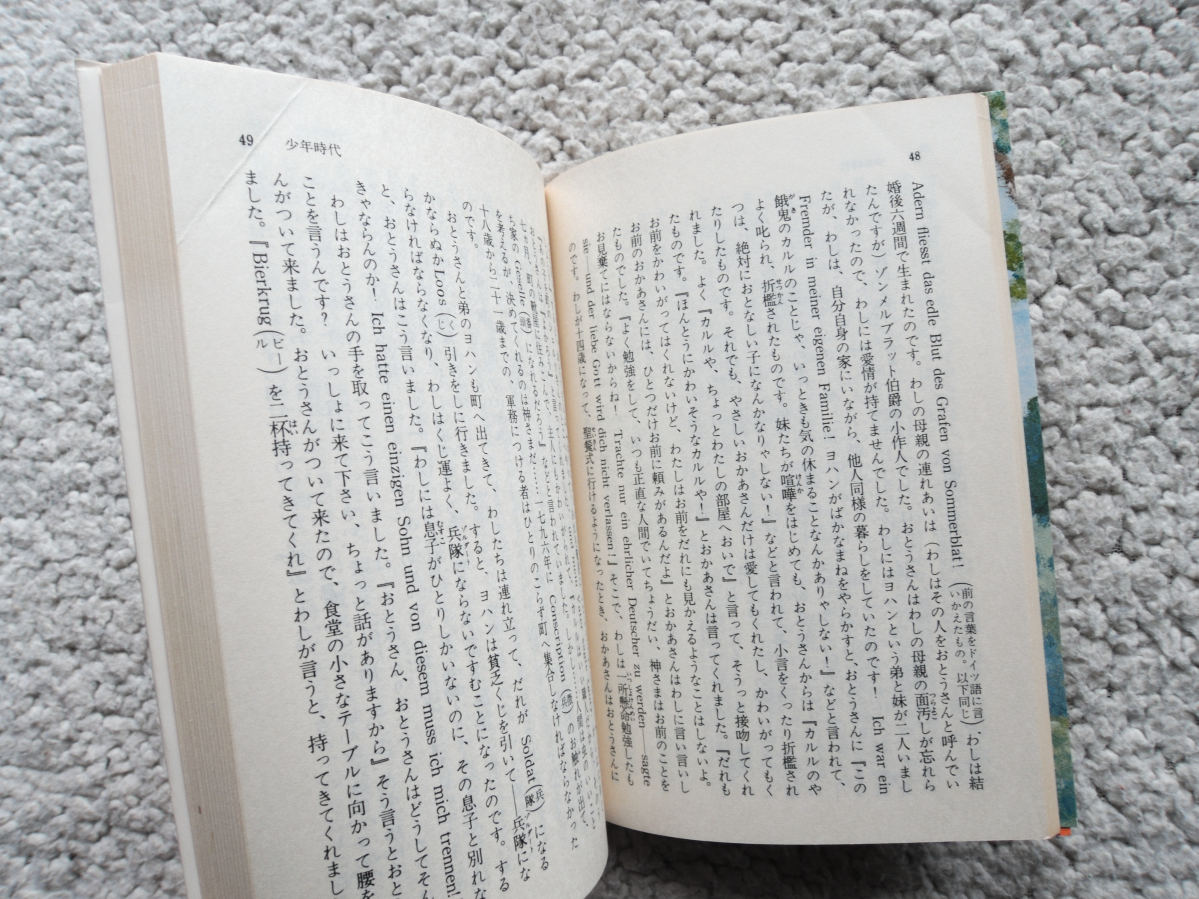 48
Adern fliesst das edle Blut des Grafen von Sommerblat!（前の言葉をドイツ語に言いかえたもの。以下同じ）わしは結
婚後六週間で生まれたのです。わしの母親の連れあいは（わしはその人をおとうさんと呼んでい
たんですが）ゾンメルブラット伯爵の小作人でした。おとうさんはわしの母親の面汚しが忘れら
れなかったので、わしには愛情が持てませんでした。わしにはヨハンという弟と妹が二人いまし
たが、わしは、自分自身の家にいながら、他人同様の暮らしをしていたのです！ Ich war ein
Fremder in meiner eigenen Familie! ヨハンがばかなまねをやらかすと、おとうさんに『この
餓鬼のカルルのことじゃ、いっときも気の休まることなんかありゃしない！』などと言われて、
よく叱られ、折檻されたものです。妹たちが喧嘩をはじめても、おとうさんからは『カルルのや
つは、絶対におとなしい子になんかなりゃしない！』などと言われて、小言をくったり折檻され
たりしたものです。それでも、やさしいおかあさんだけは愛してもくれたし、かわいがってもく
れました。よく『カルルや、ちょっとわたしの部屋へおいで』と言って、そうっと接吻してくれ
たものです。『ほんとうにかわいそうなカルルや！』とおかあさんは言ってくれました。『だれも
お前をかわいがってはくれないけど、わたしはお前をだれにも見かえるようなことはしないよ。
お前のおかあさんには、ひとつだけお前に頼みがあるんだよ』とおかあさんはわしに言い言いし
たものでした。『よく勉強をして、いつも正直な人間でいてちょうだい、神さまはお前のことを
お見棄てにはならないからね！ Trachte nur ein ehrlicher Deutscher zu werden——sagte
sie——und der liebe Gott wird dich nicht verlassen!』そこで、わしは一所懸命勉強したも
のです。わしが十四歳になって、聖餐式に行けるようになったとき、おかあさんはおとうさんに
49 少年時代
七ヵ月、町の
ち家の Geselle
を考えるが、決めてくれるのは神さまだ……一七九六年に Conscription（徴兵）のお触れが出て、
十八歳から二十一歳までの、軍務につける者はひとりのこらず町へ集合しなければならなかった
のです。
おとうさんと弟のヨハンも町へ出てきて、わしたちは連れ立って、だれが Soldat（兵隊）になる
かならぬか Loos（くじ）引きをしに行きました。すると、ヨハンは貧乏くじを引いて——兵隊にな
らなければならなくなり、わしはくじ運よく、兵隊にならないですむことになったのです。する
と、おとうさんはこう言いました。『わしには息子がひとりしかいないのに、その息子と別れな
きゃならんのか！ Ich hatte einen einzigen Sohn und von diesem muss ich mich trennen!
わしはおとうさんの手を取ってこう言いました。『おとうさん、おとうさんはどうしてそん
ことを言うんです？ いっしょに来て下さい、ちょっと話がありますから』そう言うとおと
んがついて来ました。おとうさんがついて来たので、食堂の小さなテーブルに向かって腰を
ました。『Bierkrug（ビール）を二杯持ってきてくれ』とわしが言うと、持ってきてくれまし